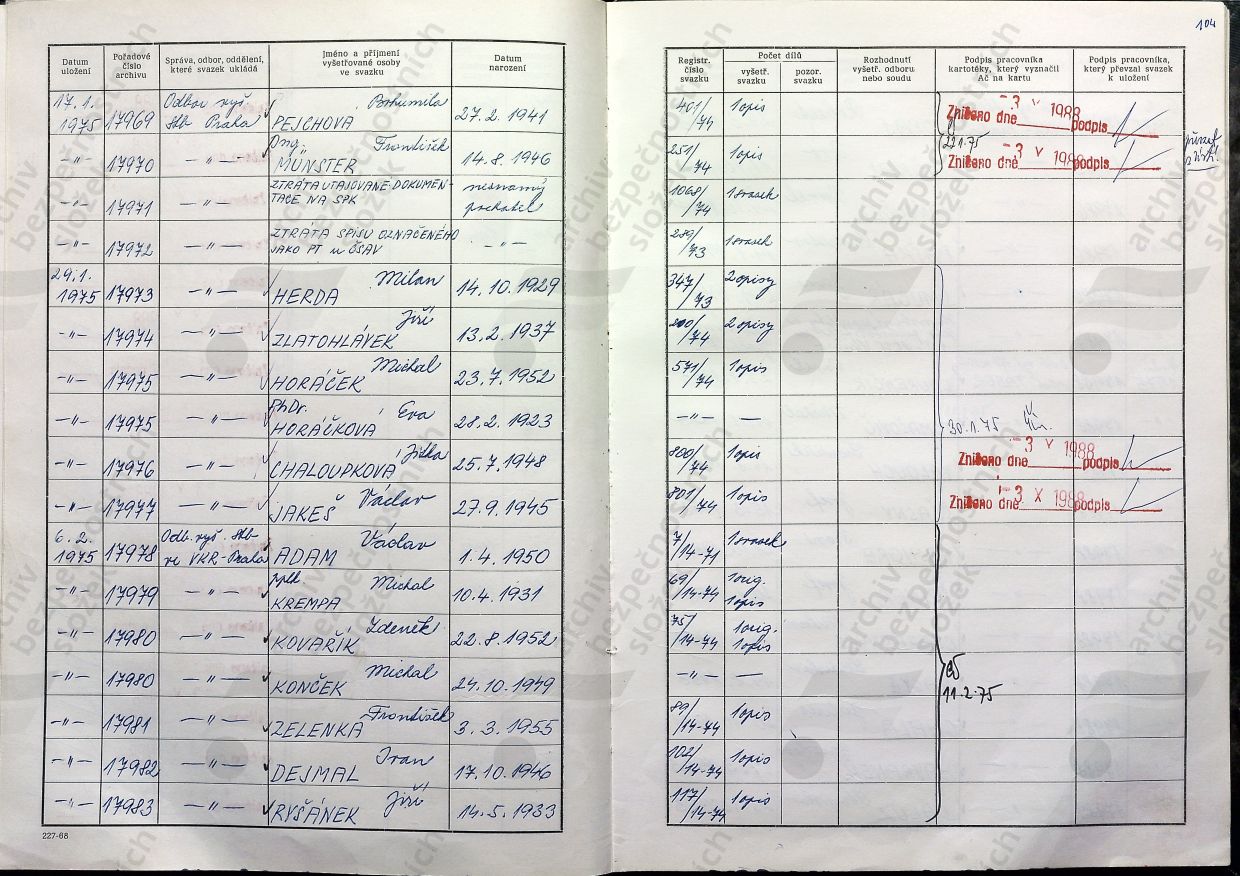 104
Datum uložení | Pořadové číslo archivu | Správa, odbor, oddělení, které svazek ukládá | Jméno a příjmení vyšetřované osoby ve svazku | Datum narození | Registr. číslo svazku | Počet dílů | vyšetř. svazku | pozor. svazku | Rozhodnutí vyšetř. odboru nebo soudu | Podpis pracovníka kartotéky, který vyznačil Ač na kartu | Podpis pracovníka, který převzal svazek k uložení
17.1. 1975 | 17969 | Odbor vyš. Stb Praha | Bohumila PEJCHOVA | 27.2.1941 | 401/74 | 1 opis | Zničeno dne 3 V 1988 podpis
-"- | 17970 | -"- | Ing. František MÜNSTER | 14.8.1946 | 251/74 | 1 opis | 22.1.75 | Zničeno dne 3 V 1988 podpis
-"- | 17971 | -"- | ZTRÁTA UTAJOVANÉ DOKUMEN-TACE NA SPK | neznámý pachatel | 1068/74 | 1 svazek
-"- | 17972 | -"- | ZTRÁTA SPISU OZNAČENÉHO JAKO PT u ČSAV | -"- | 289/73 | 1 svazek
29.1. 1975 | 17973 | -"- | Milan HERDA | 14.10.1929 | 347/73 | 2 opisy
-"- | 17974 | -"- | Jiří ZLATOHLÁVEK | 13.2.1937 | 200/74 | 2 opisy
-"- | 17975 | -"- | Michal HORÁČEK | 23.7.1952 | 571/74 | 1 opis
-"- | 17975 | -"- | PhDr. Eva HORÁČKOVÁ | 28.2.1923 | -"- | — | 30.1.75
-"- | 17976 | -"- | Jitka CHALOUPKOVÁ | 25.7.1948 | 800/74 | 1 opis | Zničeno dne 3 V 1988 podpis
-"- | 17977 | -"- | Václav JAKEŠ | 27.9.1945 | 801/74 | 1 opis | Zničeno dne 3 X 1988 podpis
6.2. 1975 | 17978 | Odb. vyš. Stb ve VKR-Praha | Václav ADAM | 1.4.1950 | 7/14-71 | 1 svazek
-"- | 17979 | -"- | pplk. Michal KREMPA | 10.4.1931 | 69/14-74 | 1 orig. 1 opis
-"- | 17980 | -"- | Zdeněk KOVAŘÍK | 22.8.1952 | 75/14-74 | 1 orig. 1 opis
-"- | 17980 | -"- | Michal KONČEK | 24.10.1949 | -"- | — | 11.2.75
-"- | 17981 | -"- | František ZELENKA | 3.3.1955 | 89/14-74 | 1 opis
-"- | 17982 | -"- | Ivan DEJMAL | 17.10.1946 | 102/14-74 | 1 opis
-"- | 17983 | -"- | Jiří RYŠÁNEK | 14.5.1933 | 117/14-74 | 1 opis
227-68
archiv bezpečnostních složek